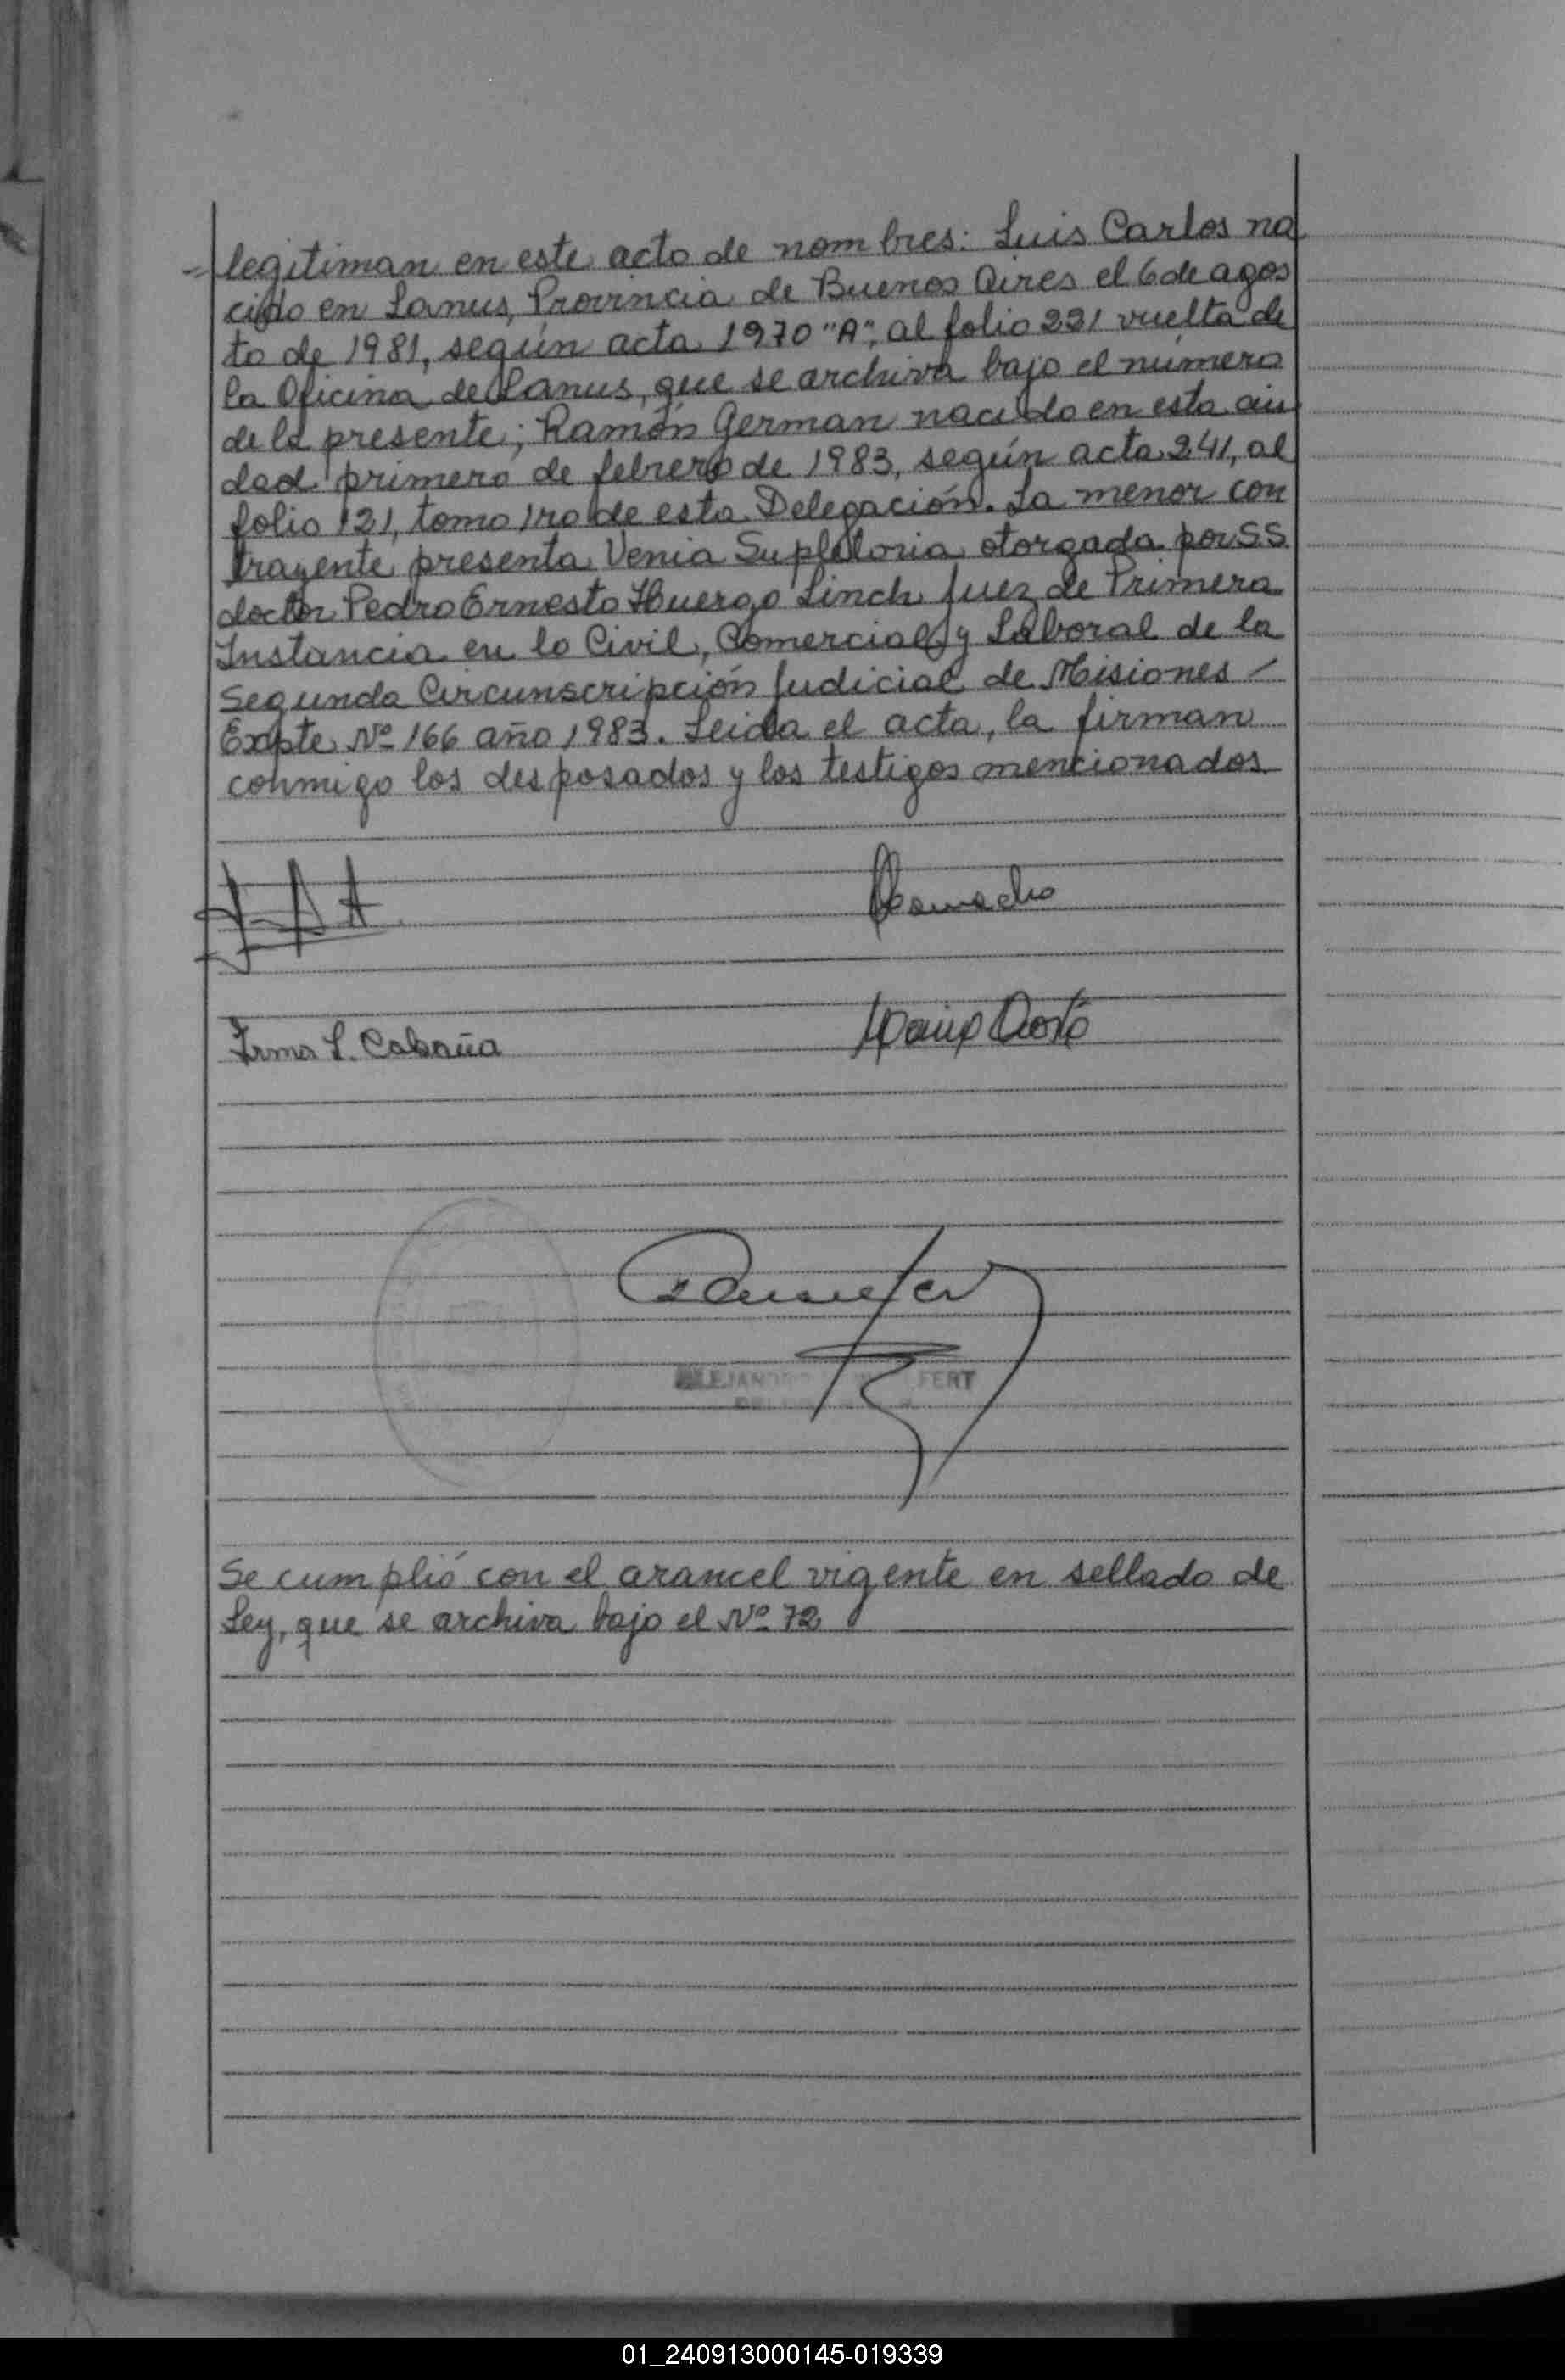 legitiman en este acto de nombres: Luis Carlos na
cido en Lanus, Provincia de Buenos Aires el 6 de agos
to de 1981, según acta 1970 "A", al folio 221 vuelta de
la Oficina de Lanus, que se archiva bajo el número
de la presente; Ramón German nacido en esta ciu
dad primero de febrero de 1983, según acta 241, al
folio 121, tomo 1ro de esta Delegación. La menor con
trayente presenta Venia Supletoria otorgada por S.S.
doctor Pedro Ernesto Huergo Linch Juez de Primera
Instancia en lo Civil, Comercial y Laboral de la
Segunda Circunscripción Judicial de Misiones -
Expte Nº 166 año 1983. Leida el acta, la firman
conmigo los desposados y los testigos mencionados
Irma L. Cabaña
ALEJANDRO FERT
Se cumplió con el arancel vigente en sellado de
Ley, que se archiva bajo el Nº 72
01_240913000145-019339